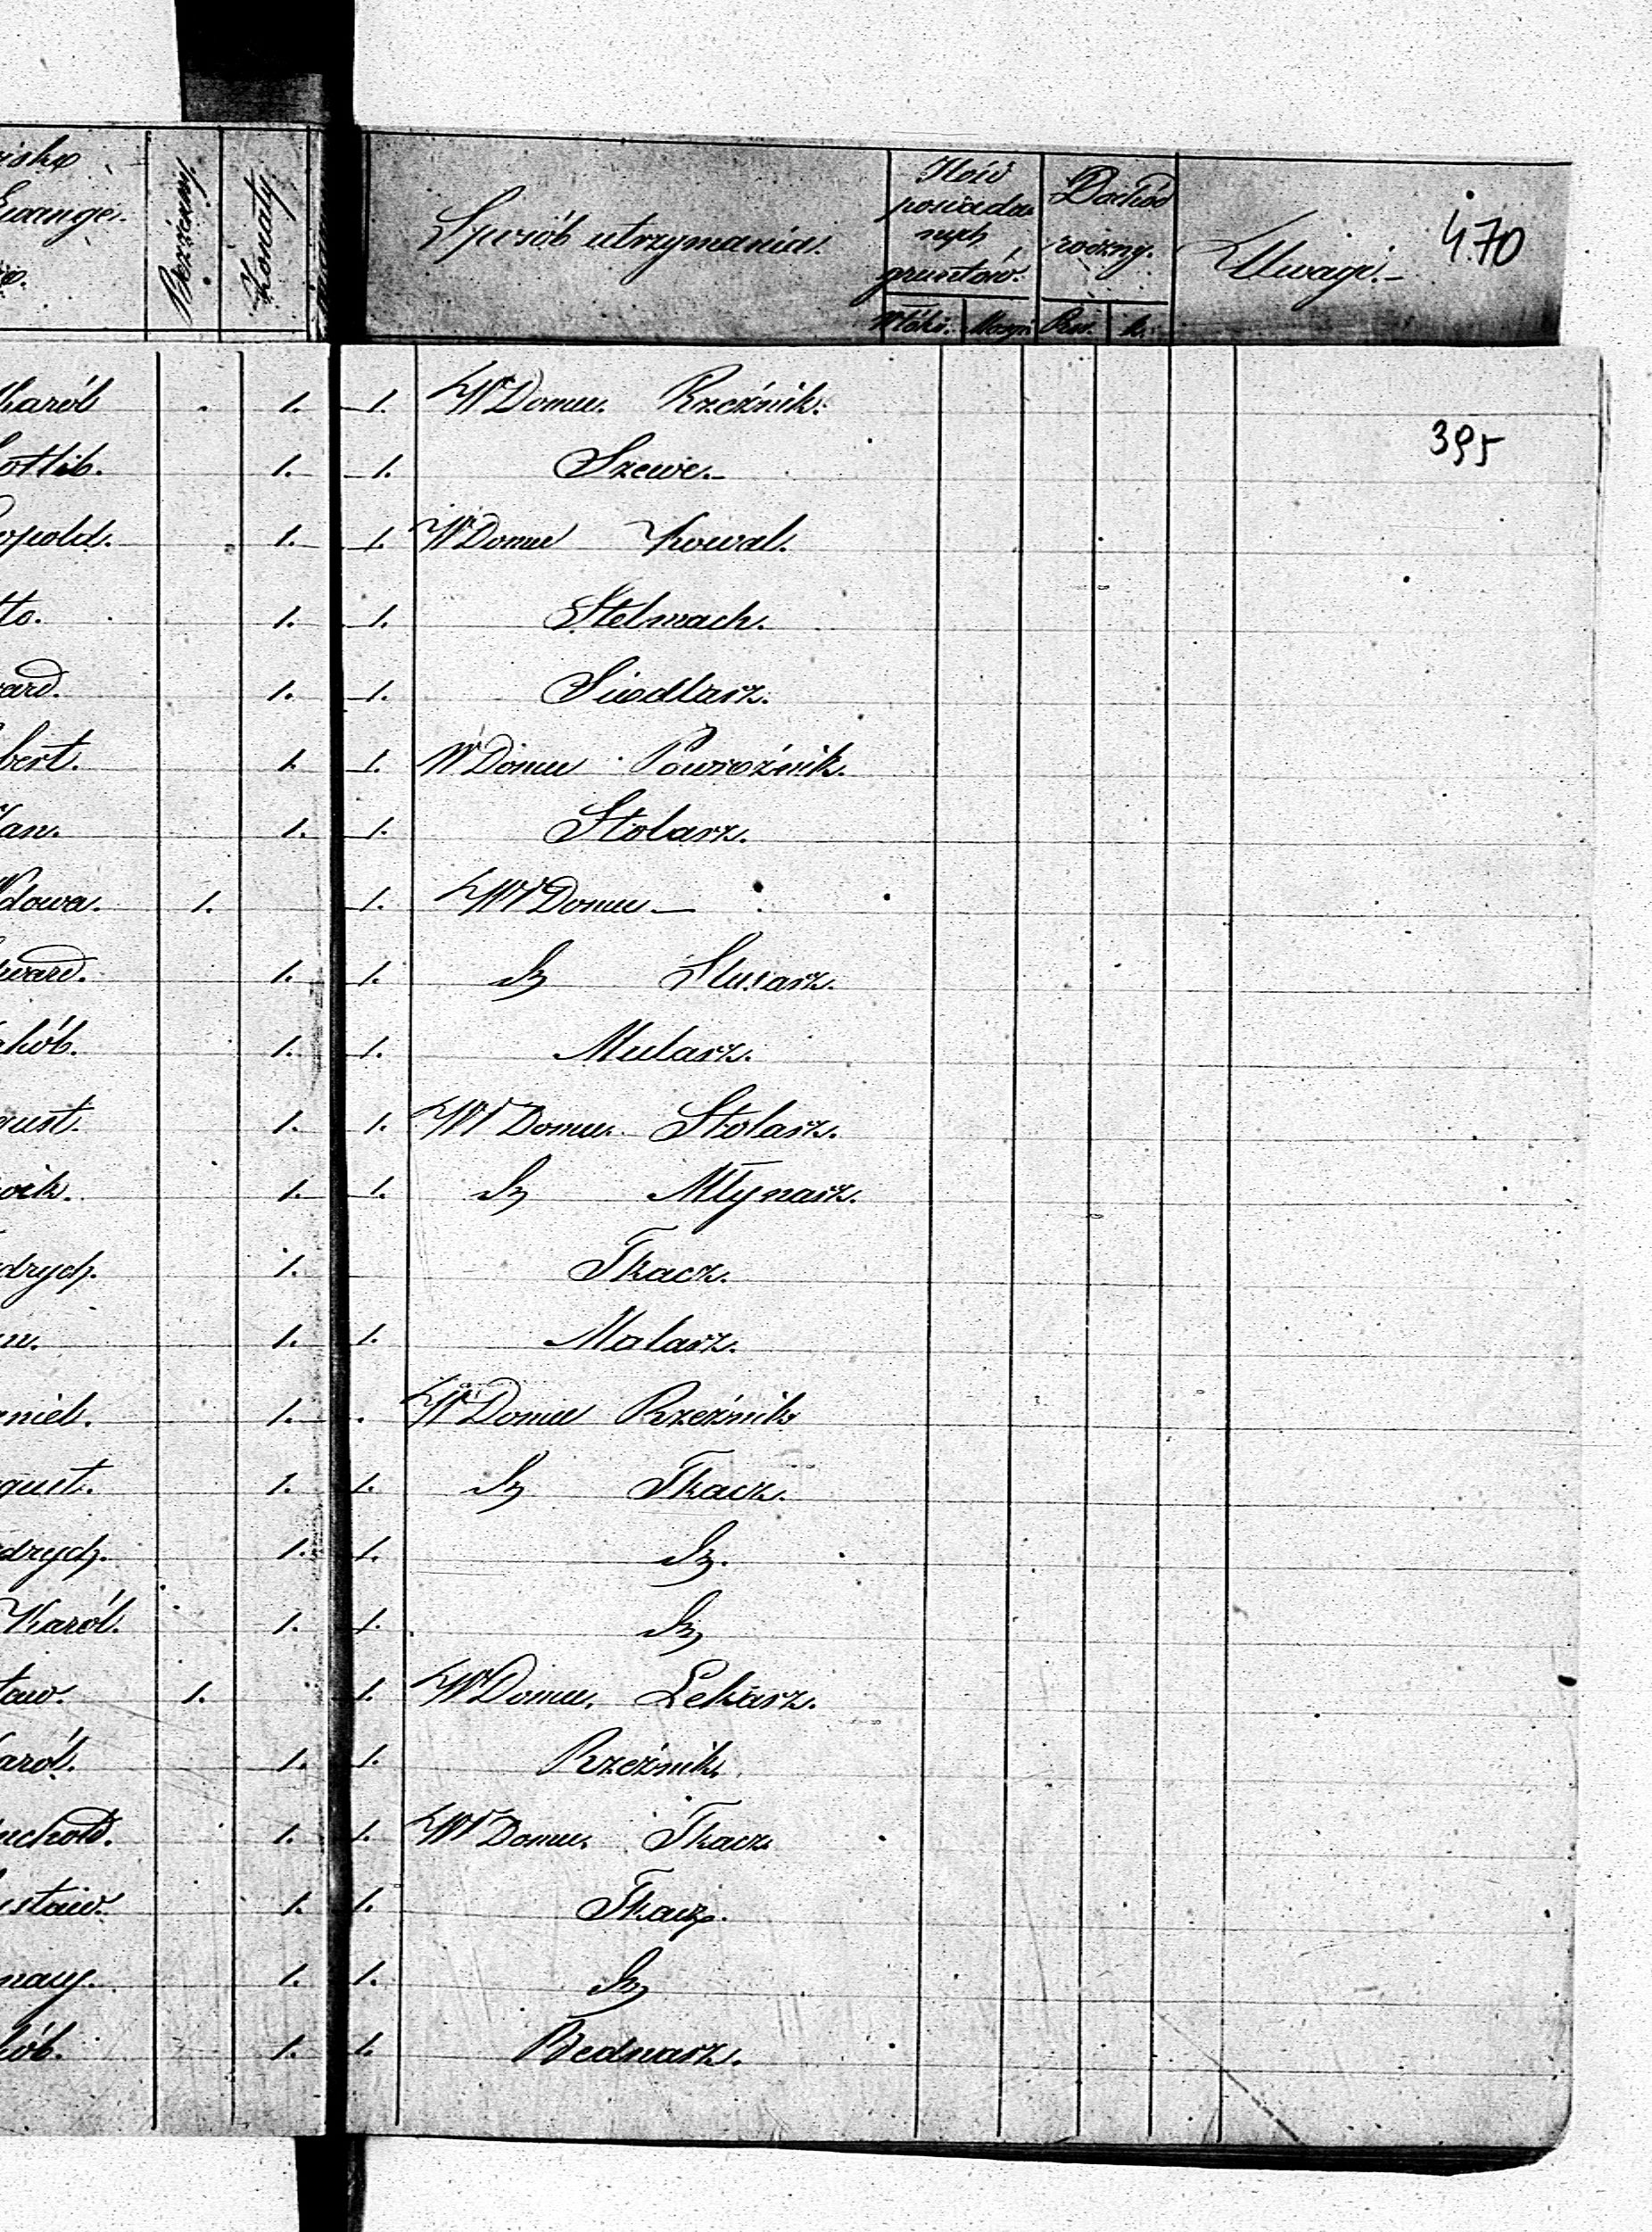 Ewange-
Bezżenny
Żonaty
Sposób utrzymania.
Ilość
posiada-
nych
gruntów.
Włók. Morgi
Dochód
roczny.
Rsr. k.
Uwagi.
470
395
Karól . 1. 1. W Domu. Rzeźnik.
ottlib. 1. 1. Szewc.
opold. 1. 1. W Domu Kowal.
tto. 1. 1. Stelmach.
ard. 1. 1. Siodlarz.
bert. 1. 1. W Domu Powroźnik.
Jan. 1. 1. Stolarz.
Wdowa. 1. 1. W Domu
ward. 1. 1. Dº Slusarz.
akób. 1. 1. Mularz.
gust. 1. 1. W Domu. Stolarz.
wik. 1. 1. Dº Młynarz.
drych. 1. Tkacz.
1. 1. Malarz.
niel. 1. . W Domu Rzeźnik
gust. 1. 1. Dº Tkacz.
drych. 1. 1. Dº.
Karól. 1. 1. Dº
taw. 1. 1. W Domu. Lekarz.
aról. 1. 1. Rzeźnik.
nchold. 1. 1. W Domu. Tkacz
ustaw. 1. 1. Tkacz.
nacy. 1. 1. Dº
kób. 1. 1. Bednarz.